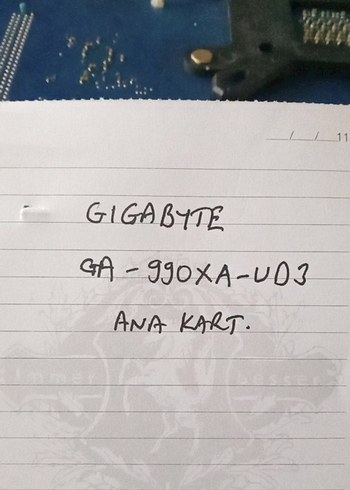 / / 11
GIGABYTE
GA-990XA-UD3
ANA KART.